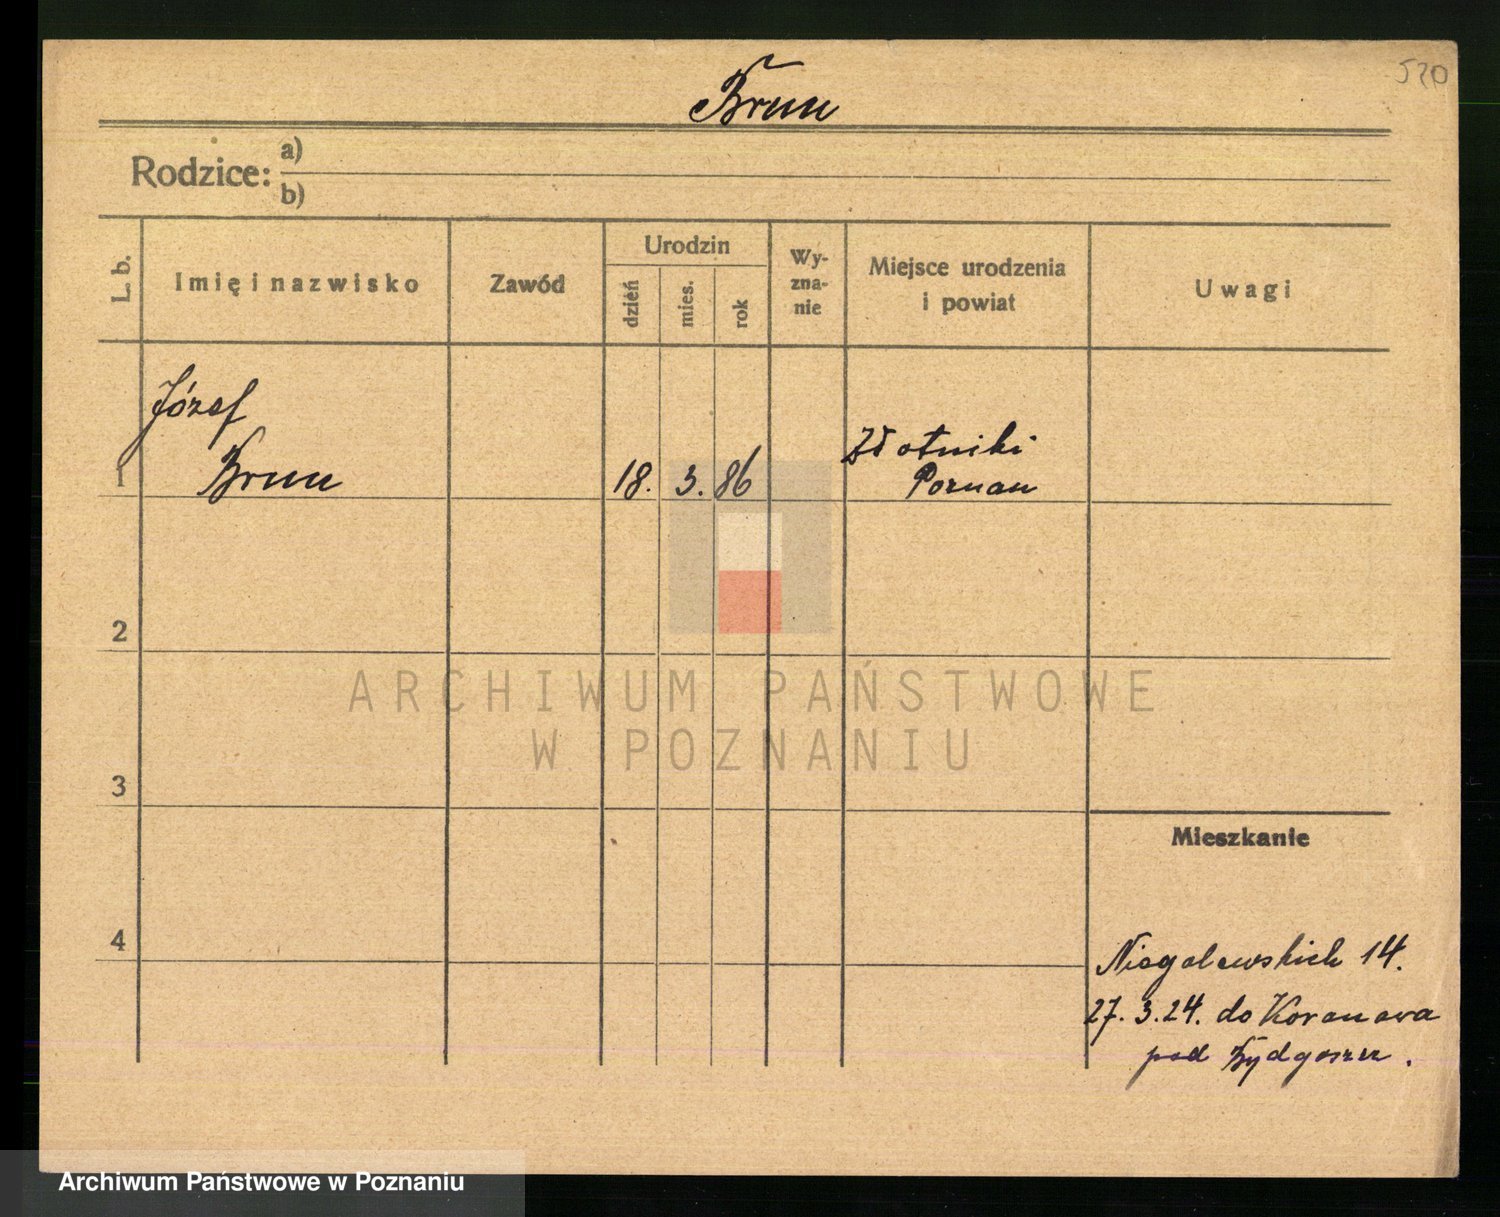 520
Brun
Rodzice: a)
b)
L. b.
Imię i nazwisko
Zawód
Urodzin
dzień
mies.
rok
Wy-
zna-
nie
Miejsce urodzenia
i powiat
Uwagi
Józef
1 Brun 18. 3. 86
Złotniki
Poznań
2
3
4
ARCHIWUM PAŃSTWOWE
W POZNANIU
Mieszkanie
Niegolewskich 14.
27. 3. 24. do Koronowa
pod Bydgoszcz.
Archiwum Państwowe w Poznaniu